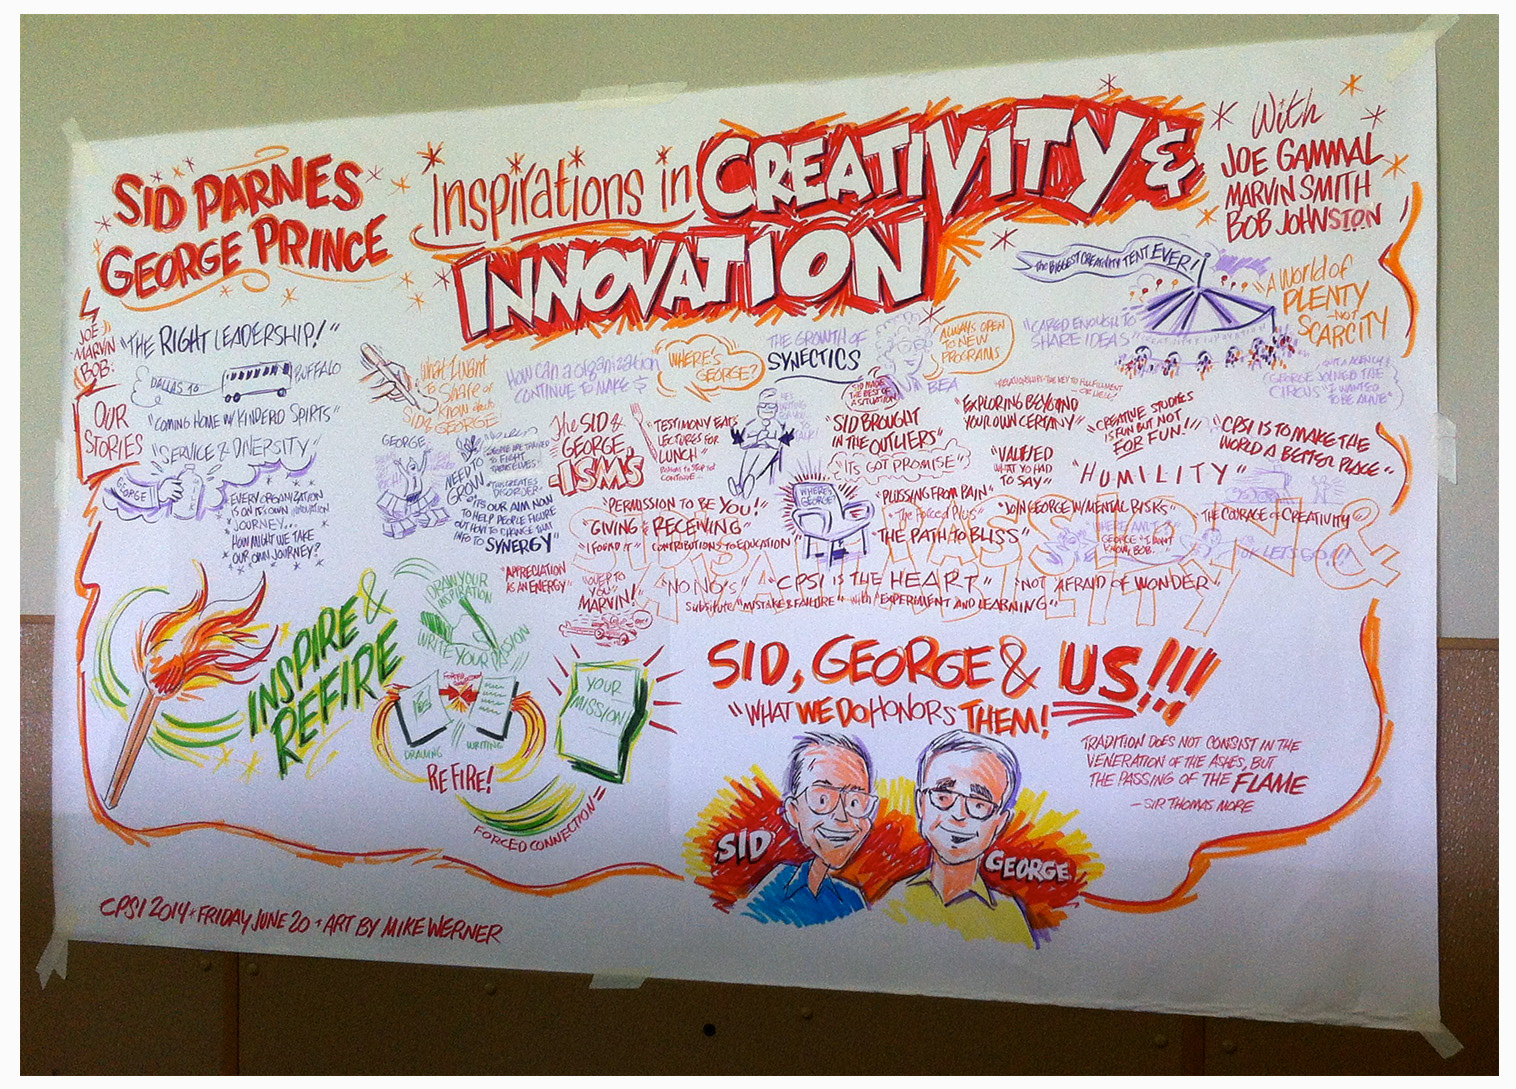 SID PARNES
GEORGE PRINCE
Inspirations in CREATIVITY &
INNOVATION
With
JOE GAMMAL
MARVIN SMITH
BOB JOHNSTON
JOE
MARVIN
BOB
OUR
STORIES
"THE RIGHT LEADERSHIP!"
DALLAS TO
BUFFALO
"COMING HOME W/ KINDERD SPIRTS"
"SERVICE & DIVERSITY"
GEORGE
EVERY ORGANIZATION
IS ON ITS OWN INNOVATION
JOURNEY...
HOW MIGHT WE TAKE
OUR OWN JOURNEY?
WHAT I WANT
TO SHARE OR
KNOW ABOUT
SID & GEORGE
HOW CAN A ORGANIZATION
CONTINUE TO MAKE $
"WHERE'S
GEORGE?"
THE GROWTH OF
SYNECTICS
BEA
ALWAYS OPEN
TO NEW
PROGRAMS
"CARED ENOUGH TO
SHARE IDEAS"
THE BIGGEST CREATIVITY TENT EVER!
"A WORLD OF
PLENTY
NOT
SCARCITY
GEORGE JOINED THE
CIRCUS "I WANTED
TO BE ALIVE"
GEORGE,
NEED TO
GROW
PEOPLE ARE TRAINED
TO FIGHT
THEMSELVES"
"THIS CREATES
DISORDER"
"IT'S OUR AIM NOW
TO HELP PEOPLE FIGURE
OUT HOW TO CHANGE THAT
INFO TO SYNERGY"
The SID &
GEORGE
-ISM'S
"TESTIMONY EATS
LECTURES FOR
LUNCH"
SID MADE
THE BEST OF
A SITUATION
"SID BROUGHT
IN THE OUTLIERS"
"ITS GOT PROMISE"
RELATIONSHIPS-THE KEY TO FULFILLMENT
OR HELL!
"EXPLORING BEYOND
YOUR OWN CERTANY"
"CREATIVE STUDIES
IS FUN BUT NOT
FOR FUN!"
"CPSI IS TO MAKE THE
WORLD A BETTER PLACE"
"VALUED
WHAT YO HAD
TO SAY"
"HUMILITY"
"PERMISSION TO BE YOU!"
"GIVING & RECEIVING"
"I FOUND IT"
CONTRIBUTIONS TO EDUCATION"
WHERE'S
GEORGE?
"PLUSSING FROM PAIN"
"The Forced Plus"
"THE PATH TO BLISS"
"JOIN GEORGE W/MENTAL RISKS"
"THE COURAGE OF CREATIVITY"
WHERE AM I?
GEORGE "I DON'T
KNOW, BOB"
OK LETS GO!!!
"APPRECIATION
AS AN ENERGY"
"OVER TO
YOU"
MARVIN!
"NO NO'S"
"CPSI IS THE HEART"
"NOT AFRAID OF WONDER"
Substitute "MISTAKE & FAILURE" with "EXPERIMENT AND LEARNING"
INSPIRE &
REFIRE
DRAW YOUR
INSPIRATION
WRITE YOUR MISSION
DRAWING
WRITING
REFIRE!
YOUR
MISSION
FORCED CONNECTION =
SID, GEORGE & US!!!
"WHAT WE DO HONORS THEM!
SID
GEORGE
TRADITION DOES NOT CONSIST IN THE
VENERATION OF THE ASHES, BUT
THE PASSING OF THE FLAME
- SIR THOMAS MORE
CPSI 2014 * FRIDAY JUNE 20 + ART BY MIKE WERNER